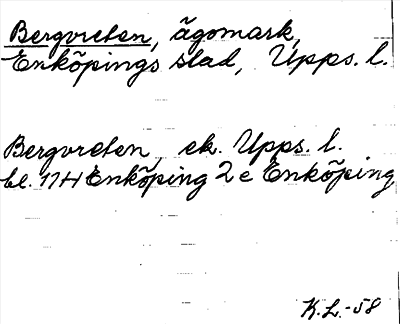 Bergvreten, ägomark,
Enköpings stad, Upps. l.
Bergvreten, ek. Upps. l.
bl. 11H Enköping 2 e Enköping
K.L.-58